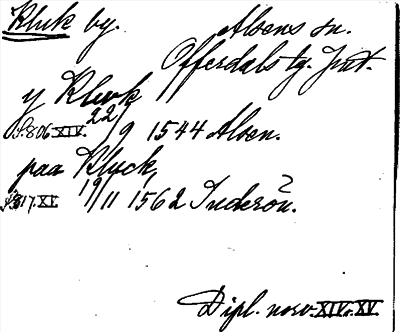 Kluk by. Alsens sn.
Offerdals tg. Jmt.
y Klwk
S.806 XIV. 22/9 1544 Alsen.
paa Kluck,
S.817. XV. 19/11 1562 Inderön.
Dipl. norv. XIV o. XV.